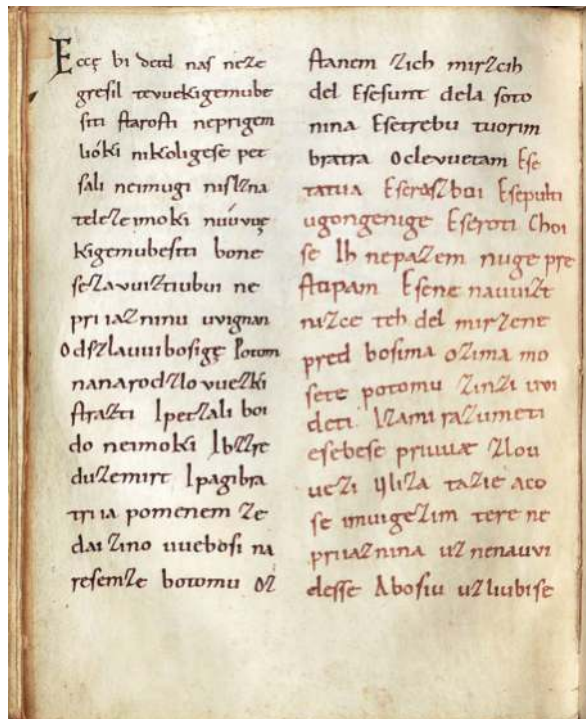 Eccę bi detd naſ neze
greſil tevuekigemube
ſiti ſtaroſti neprigem
lióki nikoligeſe pet
ſali neimugi niſlzna
teleze imoki nuúvuę
kigemubeſiti bone
ſezavuiztiubui ne
pri iazninu uvignan
Odſzlauuiboſigę Potom
nanarodzlovuezki
ſtrazti Ipetzali boi
do neimoki Ibzzre
duzemirt Ipagibra
tri ia pomenem ze
dai zino uueboſi na
reſemze botomu oz
ſtanem zich mirzcih
del Eſeſunt dela ſoto
nina Eſetrebu tuorim
bratra Oclevuetam Eſe
tatua Eſerozboi Eſepulti
ugongenige Eſeroti Choi
ſe Ih nepazem nuge pre
ſtupam Eſene nauuizt
nizce teh del mirzene
pred boſima ozima mo
ſete potomu zinzi uvi
deti Izami razumeti
eſebeſe priuuæ zlou
uezi yliza tazie aco
ſe imuigezim tere ne
priiaznina uz nenauvi
deſſe Aboſiu uzliubiſe